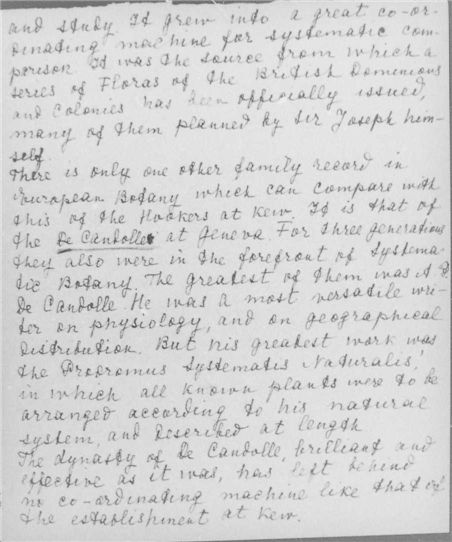 and study It grew into a great co-or-
dinating machine for systematic com-
parison. It was the source from which a
series of Floras of the British Dominions
and Colonies has been officially issued,
many of them planned by Sir Joseph him-
self.
There is only one other family record in
European Botany which can compare with
this of the Hookers at Kew. It is that of
the De Candolles at Geneva. For three generations
they also were in the forefront of systema-
tic Botany. The greatest of them was A. P.
De Candolle. He was a most versatile wri-
ter on physiology, and on geographical
distribution. But his greatest work was
the Prodromus Systematis Naturalis,
in which all known plants were to be
arranged according to his natural
system, and described at length
The dynasty of De Candolle, brilliant and
effective as it was, has left behind
no co-ordinating machine like that of
the establishment at Kew.